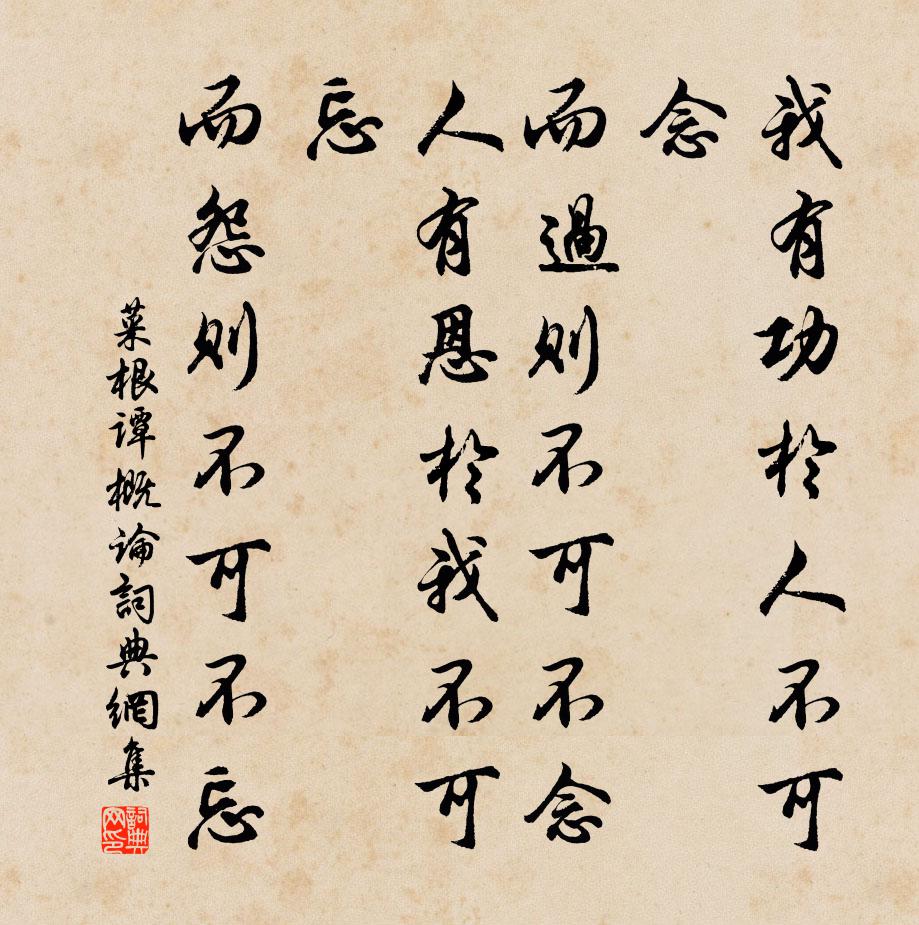 我有功於人不可
念
而過則不可不念
人有恩於我不可
忘
而怨則不可不忘
菜根谭概论詞典網集
詞典网印